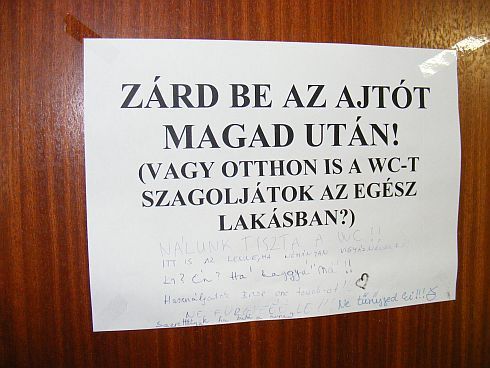 ZÁRD BE AZ AJTÓT
MAGAD UTÁN!
(VAGY OTTHON IS A WC-T
SZAGOLJÁTOK AZ EGÉSZ
LAKÁSBAN?)
NÁLUNK TISZTA A WC!!
ITT IS AZ LENNE, HA NÉHÁNYAN
Ki? Én? Há! Laggyá' má'!!
Ne tűnjzed ki!!!